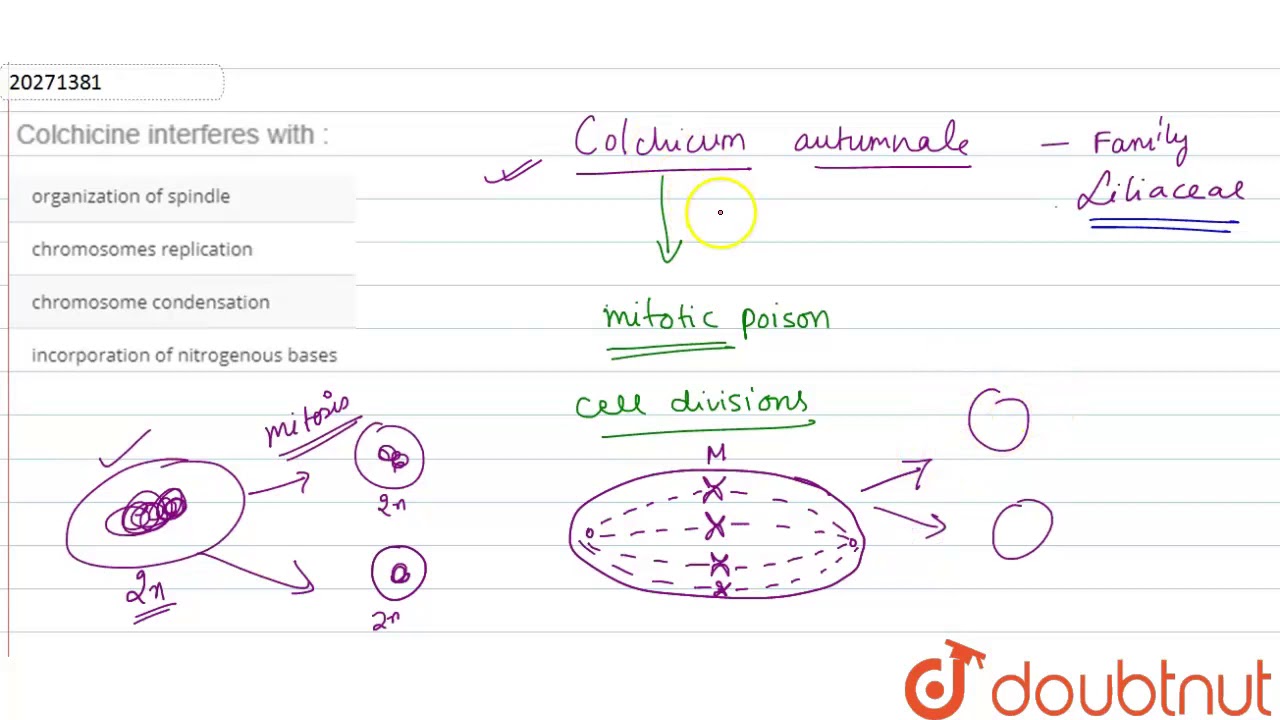 20271381
Colchicine interferes with :
organization of spindle
chromosomes replication
chromosome condensation
incorporation of nitrogenous bases
Colchicum autumnale — Family
Liliaceae
mitotic poison
cell divisions
mitosis
2n
2n
2n
M
doubtnut